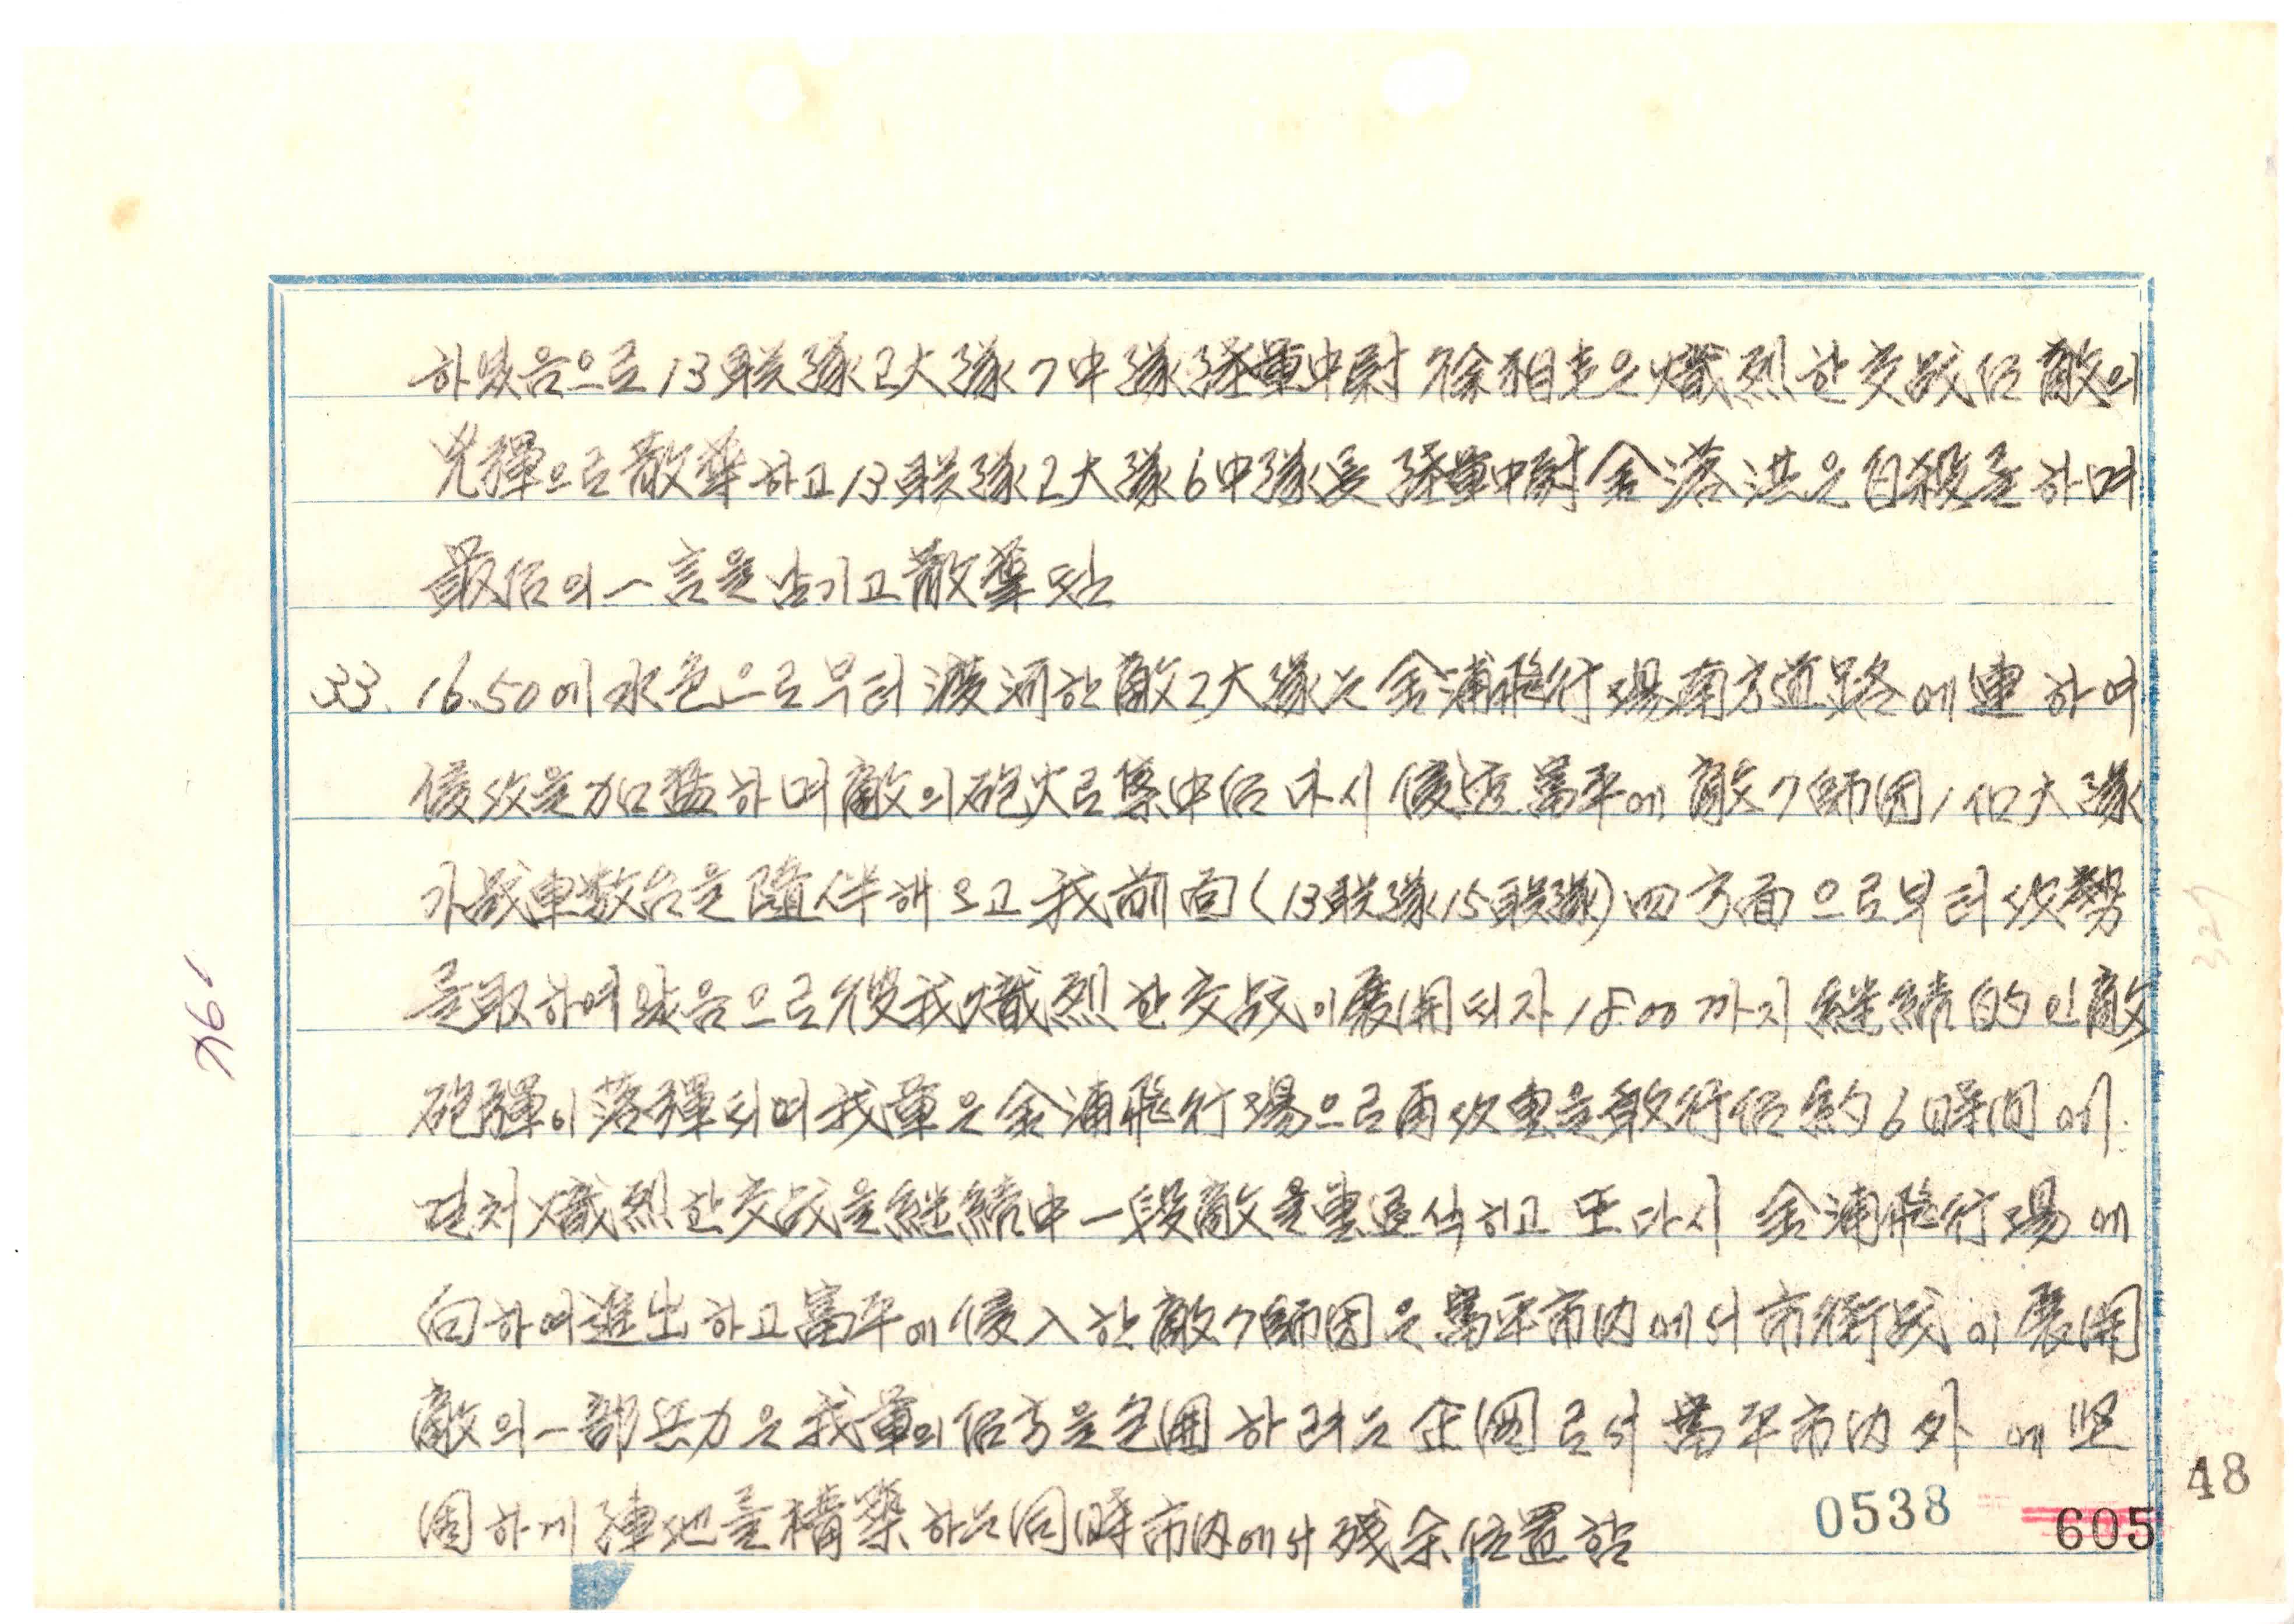 하였음으로 13联隊 2大隊 7中隊 陸軍中尉 徐相 은 熾烈한 交战后 敵의
兇彈으로 散華하고 13联隊 2大隊 6中隊長 陸軍中尉 金落洪은 自殺을 하며
最后의 一言을 남기고 散華됨
33. 16.50에 水色으로부터 渡河한 敵 2大隊는 金浦飛行場 南方道路에 連하여
侵攻을 加 하며 敵의 砲火로 集中后 다시 富平에 敵 7師団 1個大隊
가 战車数台을 隨伴해 오고 我前面(13联隊 15联隊) 四方面으로부터 攻勢
을 取하여 왔음으로 彼我 熾烈한 交战이 展開되자 18.00까지 継続的인 敵
砲彈이 落彈되며 我軍은 金浦飛行場으로 再攻 을 敢行后 約 6時間에
걸처 熾烈한 交战을 継続中 一段 敵을 退식히고 또다시 金浦飛行場에
向하여 進出하고 富平에 侵入한 敵 7師団은 富平市内에서 市街战이 展開
敵의 一部兵力은 我軍의 后方을 包囲하려는 企図로서 富平市内外에 坚
固하게 陣地를 構築하는 同時 市内에서 残余 位置함
0538
605
48